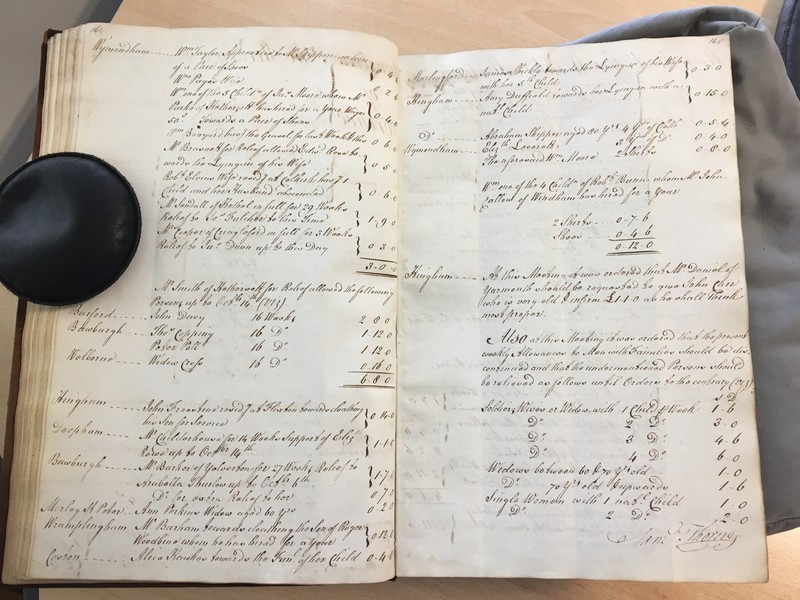 164
Wymondham Wm. Taylor Apprentice to Mr. Skipper
of a Pair of Shoes 0 4
Wm. Pages Wife 2 6
Wm. one of the 5 Childn. of Jas. Moore whom Mr.
Parks of Hethersett has hired for a Year Wages
50s. Towards a Pair of Shoes 0 4 0
0 6
Mr. Barnett for Relief allowed
wards the Lying in of his Wife 0 5
Robt.
Child and her Husband absconded 0 6
Mr. Kendall of Hethel in full for 29 Weeks
Relief to to this Time 1 9 0
Mr. Cooper of Cringleford in full for 3 Weeks
Relief to Jas. Dunn up to this Day 0 3 0
3 0 0
Mr. Smith of Hethersett for Relief allowed the following
Persons up to Octbr. 14th (viz)
Barford John Davy 16 Weeks 2 8 0
Bawburgh Thos. Copping 16 Do. 1 12 0
Peter Poll 16 Do. 1 12 0
Welborne Widow Cross 16 Do. 0 16 0
6 8 0
Hingham John at towards cloathing
his Son for Service 0 14 0
Deopham Mr. Childerhouse for 14 Weeks Support of Elizth.
up to Octbr. 14th 1 1
Bawburgh Mr. Barker of Yelverton for 27 Weeks Relief to
Arabella Thurlow up to Octbr. 1 7
Do. for extra Relief to her 0 7
Ann Perkins Widow aged 60 yrs 0 2
Wramplingham Mr. Barham towards cloathing the Son of Roger
Woodbine whom he has hired for a Year 0 12
Alice Hawkes towards the Funl. of her Child 0 4
165
James towards the Lying in of his Wife
with her 5th Child 0 3 0
Hingham Amy Duffield towards her Lying in with a
natl. Child 0 15 0
Do. Abraham Skipper aged 80 yrs 0 5 4
Wymondham Elizth. 0 4 0
The aforesaid Wm. Moore 2 Shirts 0 8 0
Wm. one of the 4 Childn. of Robt. Bunn whom Mr. John
of Windham has hired for a Year
2 Shirts 0 7 6
Shoes 0 4 6
0 12 0
Hingham At this Meeting it was ordered that Mr. Daniel of
Yarmouth should be requested to give John
who is very old & infirm £1 1 0 as he shall think
most proper.
Also at this Meeting it was ordered that the present
weekly Allowances to Men with Families should be dis-
continued and that the undermentioned Persons should
be relieved as follows until Orders to the contrary (viz)
s D
Soldiers Wives or Widow with 1 Child ℙ Week 1 6
Do. 2 Do. 3 0
Do. 3 Do. 4 6
Do. 4 Do. 6 0
Widows between 60 & 70 Yrs old 1 0
Do. 70 yrs old & upwards 1 6
Single Women with 1 natl. Child 1 0
Do. 2 Do. 2 0